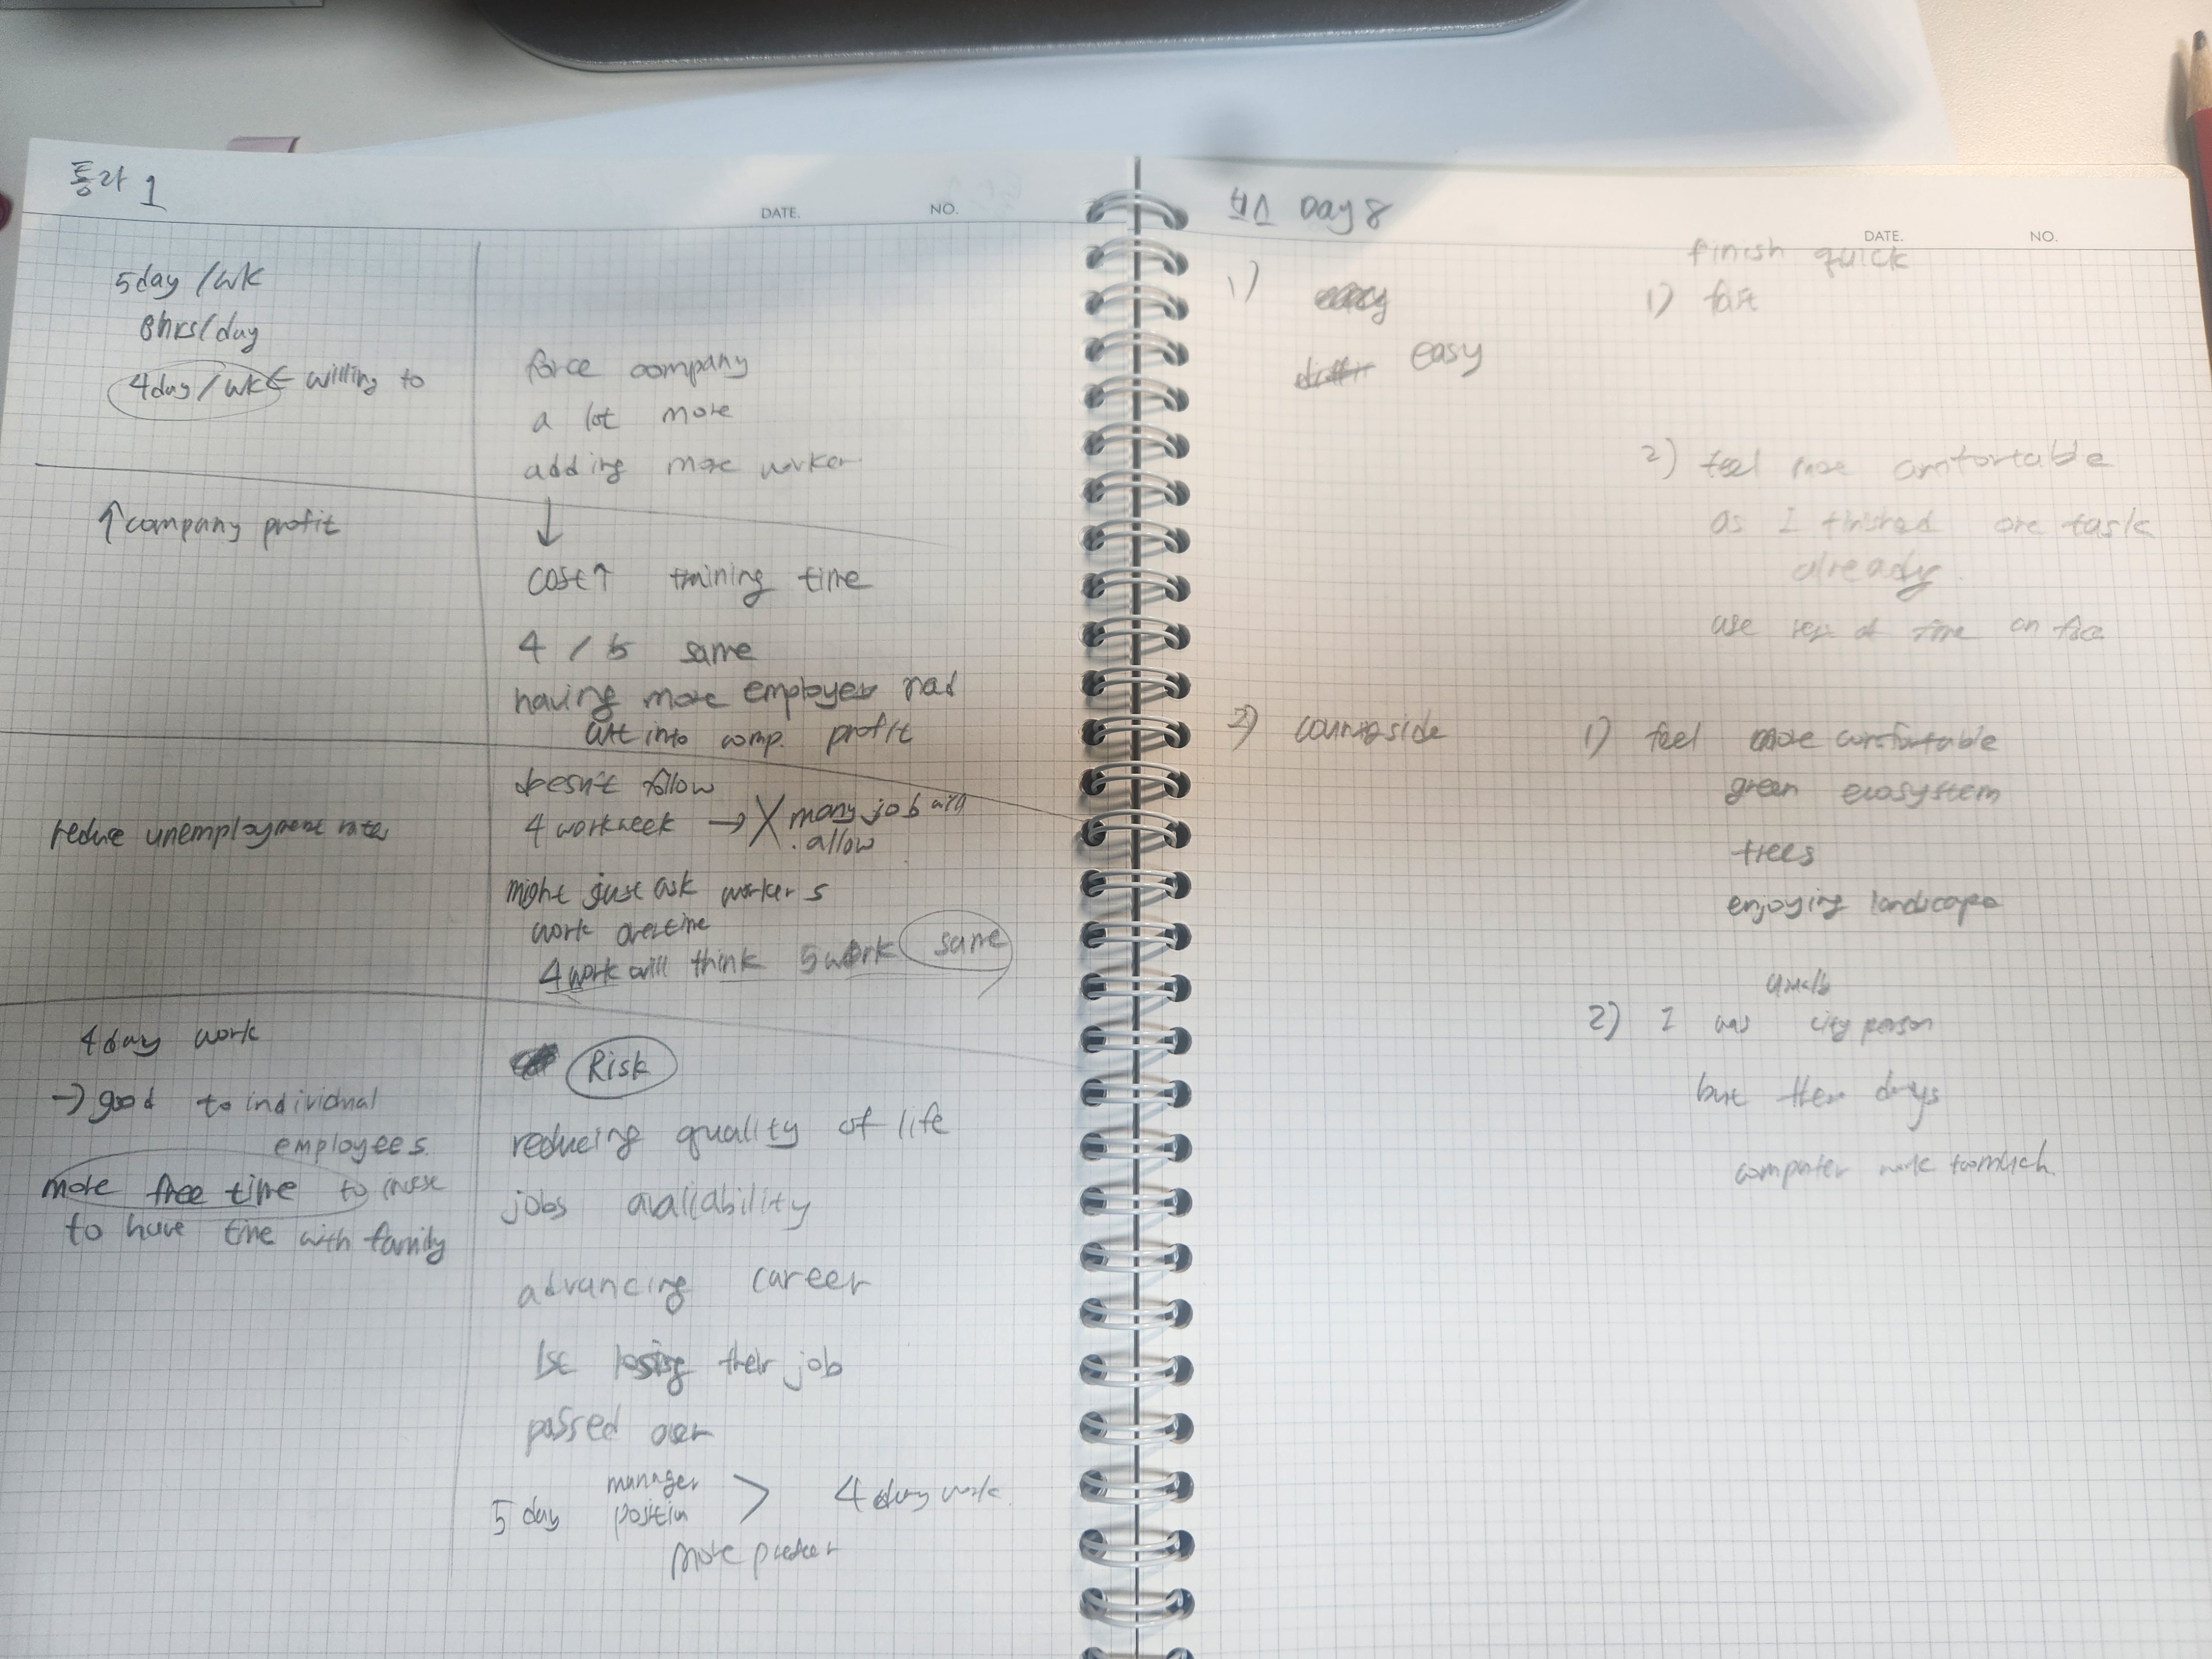 통라 1
DATE.
NO.
5day /wk
8hrs/day
4day /wk ← willing to
↑company profit
reduce unemployment rates
4day work
→ good to individual
employees.
more free time to
to have time with family
force company
a lot more
adding more worker
↓
cost↑ training time
4 / 5 same
having more employees
cut into comp. profit
doesn't follow
4 workweek → X many job will
allow
might just ask workers
work overtime
4work will think 5work same
Risk
reducing quality of life
jobs avaliability
advancing career
1st losing their job
passed over
manager
5 day position > 4 day work.
more prefer
Day 8
DATE.
NO.
1)
easy
finish quick
1) fast
2) feel more comfortable
as I finished one task
already
use of time on
2) countryside
1) feel more comfortable
green ecosystem
trees
enjoying landscape
2) I was city person
but these days
computer work too much.